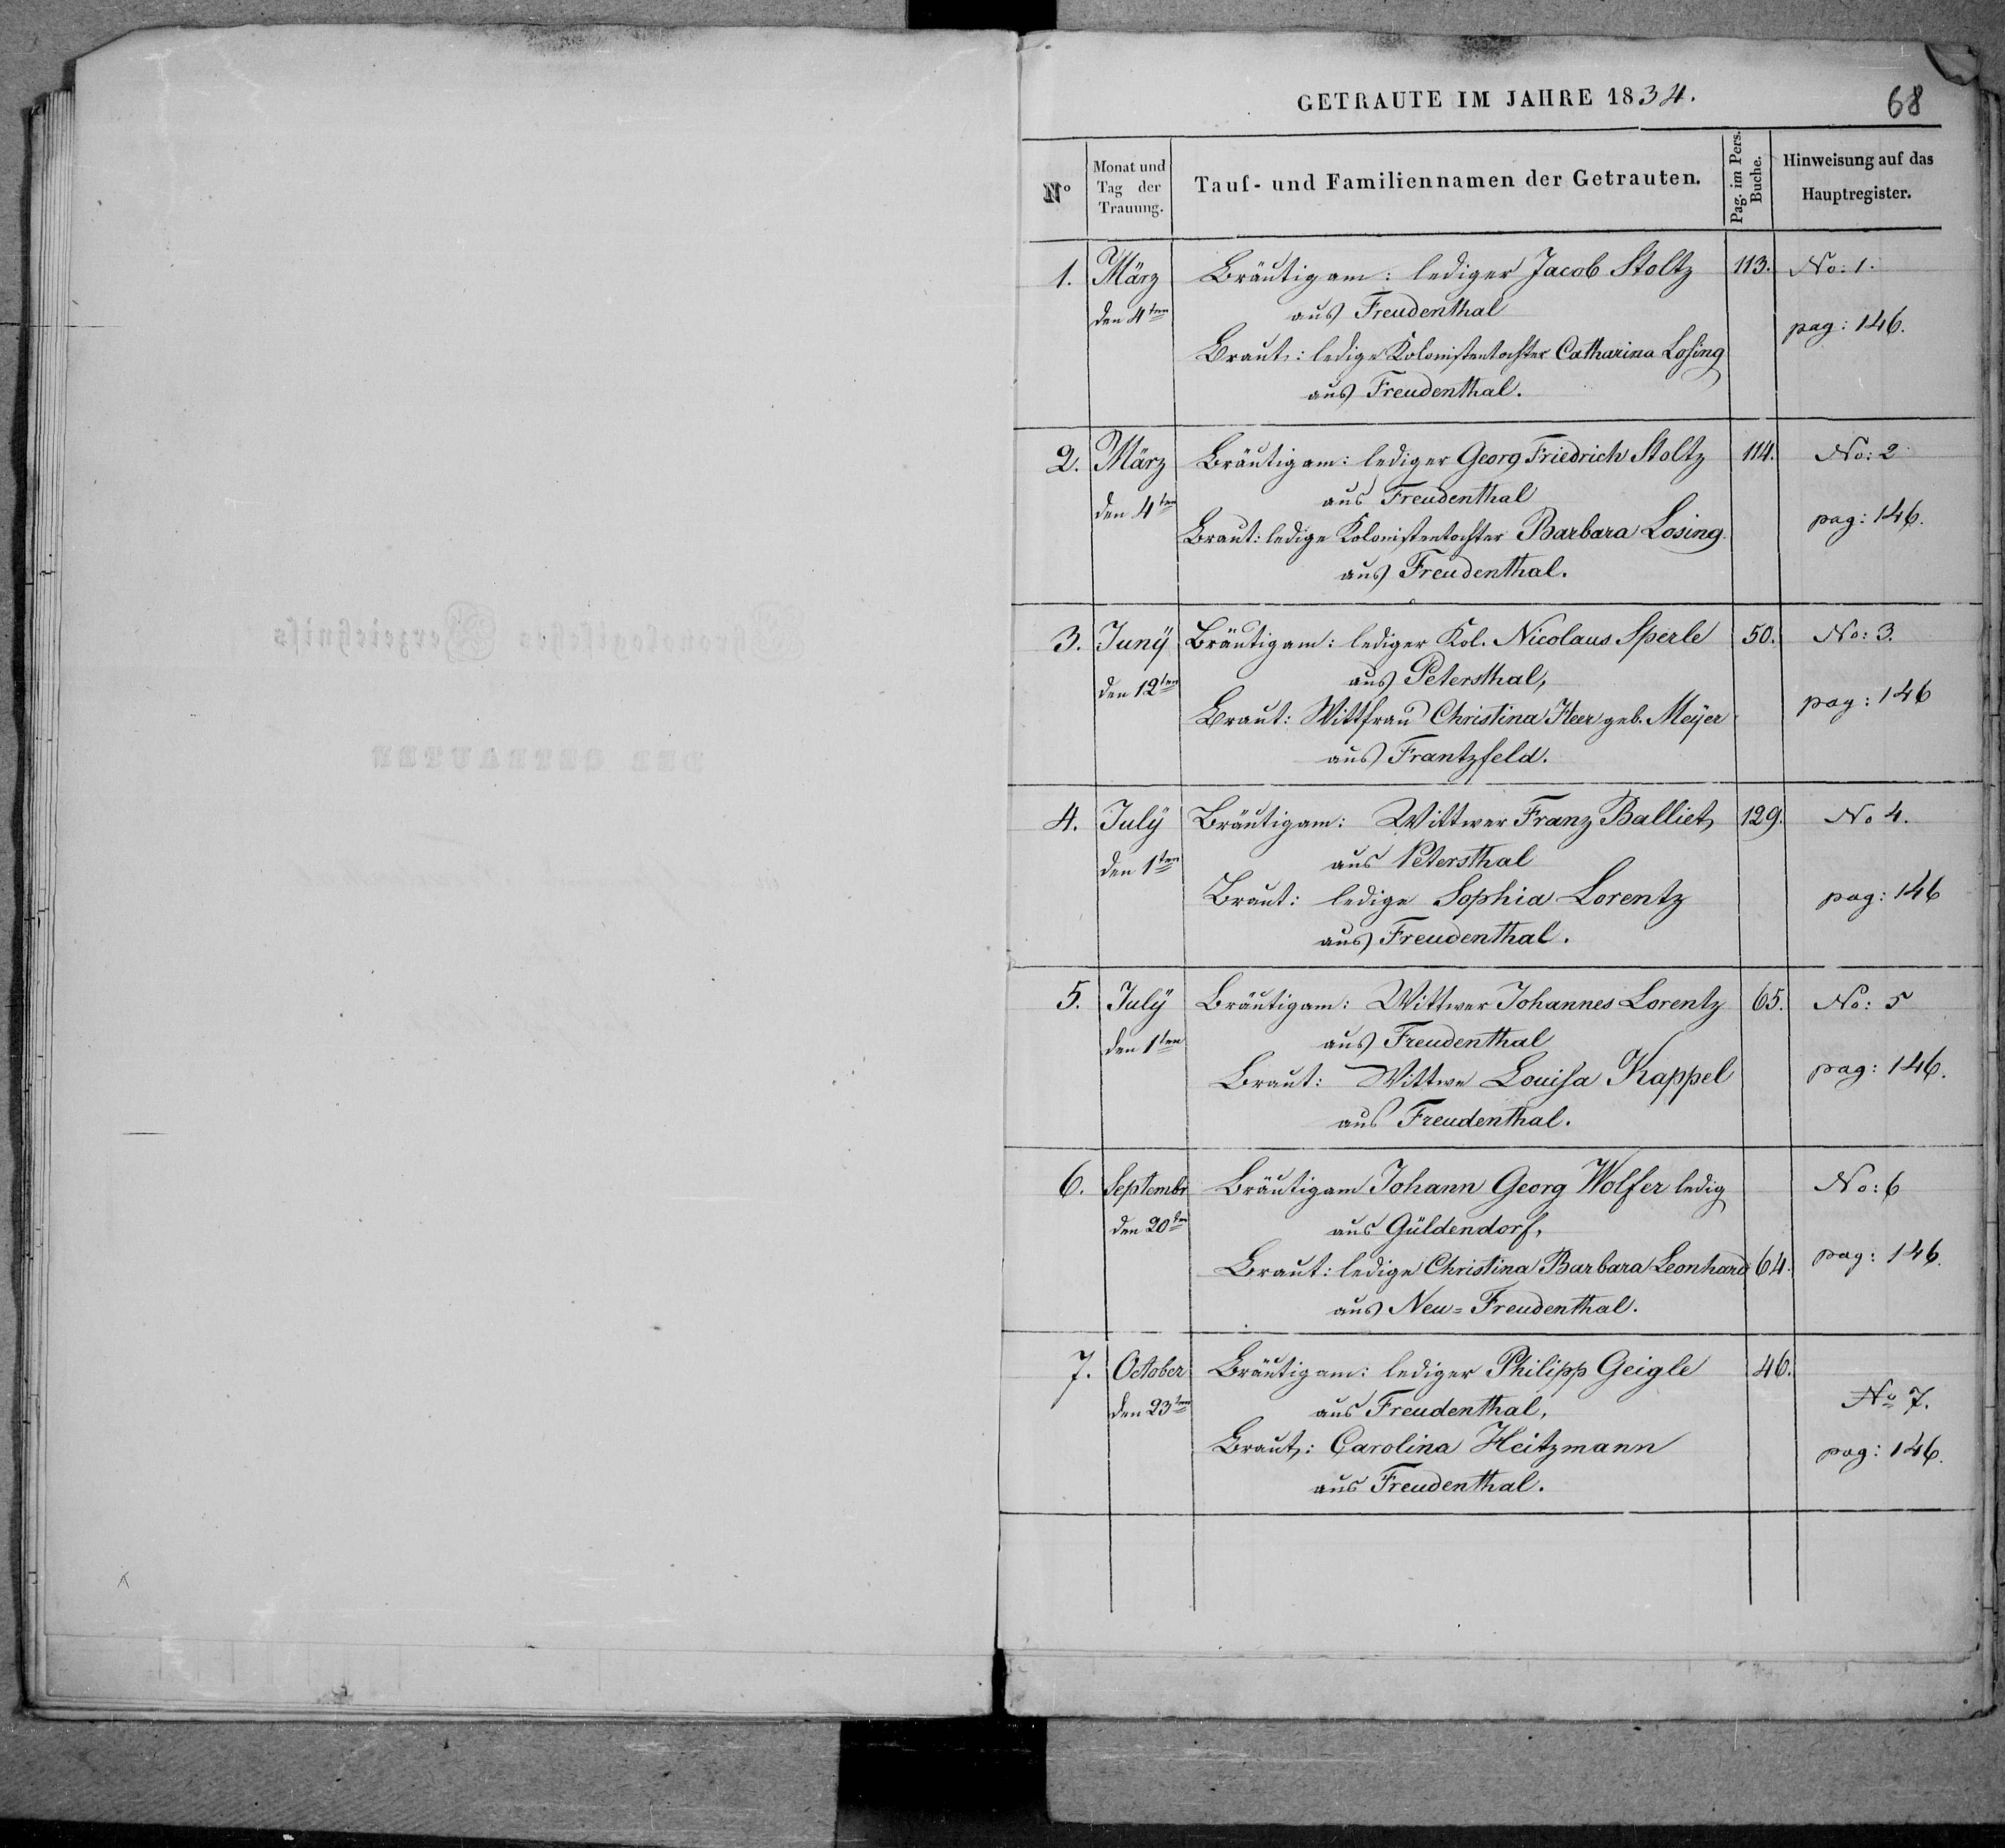 GETRAUTE IM JAHRE 1834.
68
No
Monat und
Tag der
Trauung.
Tauf- und Familiennamen der Getrauten.
Pag. im Pers.
Buche.
Hinweisung auf das
Hauptregister.
1. März Bräutigam: lediger Jacob Stoltz 113. No: 1.
den 4ten aus Freudenthal
pag: 146.
Braut: ledige Kolonistentochter Catharina Losing
aus Freudenthal.
2. März Bräutigam: lediger Georg Friedrich Stoltz 114. No: 2
den 4ten aus Freudenthal
Braut: ledige Kolonistentochter Barbara Losing. pag: 146.
aus Freudenthal.
3. Juny Bräutigam: lediger Kol. Nicolaus Sperle 50. No: 3.
den 12ten aus Petersthal,
Braut: Wittfrau Christina Heer geb. Meyer pag: 146
aus Frantzfeld.
4. July Bräutigam: Wittwer Franz Balliet 129. No 4.
den 1ten aus Petersthal
Braut: ledige Sophia Lorentz pag: 146
aus Freudenthal.
5. July Bräutigam: Wittwer Johannes Lorentz 65. No: 5
den 1ten aus Freudenthal
Braut: Wittwe Louisa Kappel pag: 146.
aus Freudenthal.
6. Septembr Bräutigam Johann Georg Wolfer ledig No: 6
den 20ten aus Güldendorf,
Braut: ledige Christina Barbara Leonhard 64. pag: 146.
aus Neu=Freudenthal.
7. October Bräutigam: lediger Philipp Geigle 46.
den 23ten aus Freudenthal, No 7.
Braut: Carolina Heitzmann pag: 146.
aus Freudenthal.